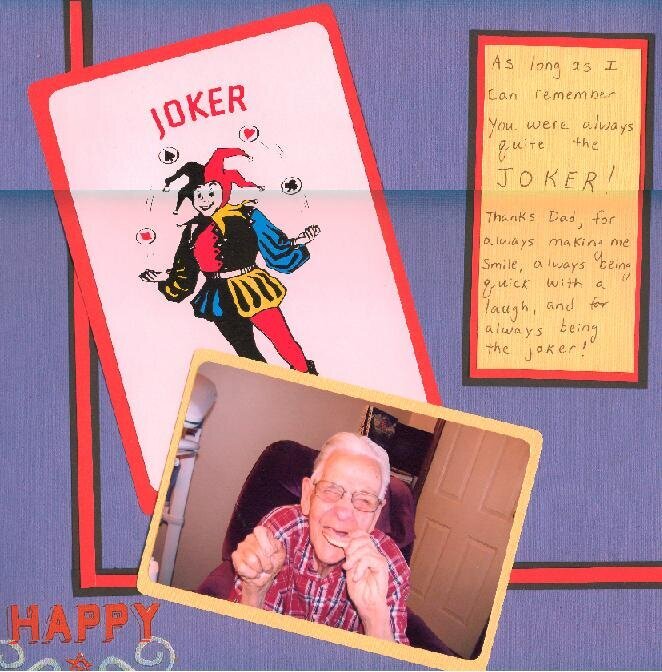 JOKER
As long as I
can remember
You were always
quite the
JOKER!
Thanks Dad, for
always making me
smile, always being
quick with a
laugh, and for
always being
the joker!
HAPPY